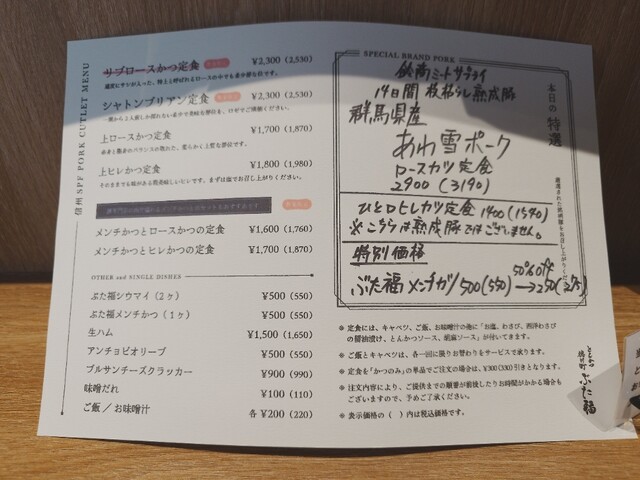 信州 SPF PORK CUTLET MENU
サブロースかつ定食 ¥2,300 (2,530)
シャトンブリアン定食 ¥2,300 (2,530)
上ロースかつ定食 ¥1,700 (1,870)
上ヒレかつ定食 ¥1,800 (1,980)
そのままでも味がある程美味しいヒレです。まずは塩でお召し上がりください。
メンチかつとロースかつの定食 ¥1,600 (1,760)
メンチかつとヒレかつの定食 ¥1,700 (1,870)
OTHER and SINGLE DISHES
ぶた福シウマイ（2ヶ） ¥500 (550)
ぶた福メンチかつ（1ヶ） ¥500 (550)
生ハム ¥1,500 (1,650)
アンチョビオリーブ ¥500 (550)
ブルサンチーズクラッカー ¥900 (990)
味噌だれ ¥100 (110)
ご飯／お味噌汁 各 ¥200 (220)
SPECIAL BRAND PORK
本日の特選
14日間 枝枯らし熟成豚
群馬県産
あわ雪ポーク
ロースカツ定食
2900 (3190)
ひと口ヒレカツ定食 1400(1540)
※こちらは熟成豚ではございません。
特別価格
50%off
ぶた福 メンチカツ 500(550)→250(275)
※ 定食には、キャベツ、ご飯、お味噌汁の他に「お塩、わさび、西洋わさび
の醤油漬け、とんかつソース、胡麻ソース」が付いてきます。
※ ご飯とキャベツは、各一回に限りお替わりをサービスで承ります。
※ 定食を「かつのみ」の単品でご注文の場合は、¥300(330)引きとなります。
※ 注文内容により、ご提供までの順番が前後したりお時間がかかる場合も
ございますので、予めご了承ください。
※ 表示価格の（　）内は税込価格です。
とんかつ
ぶた福